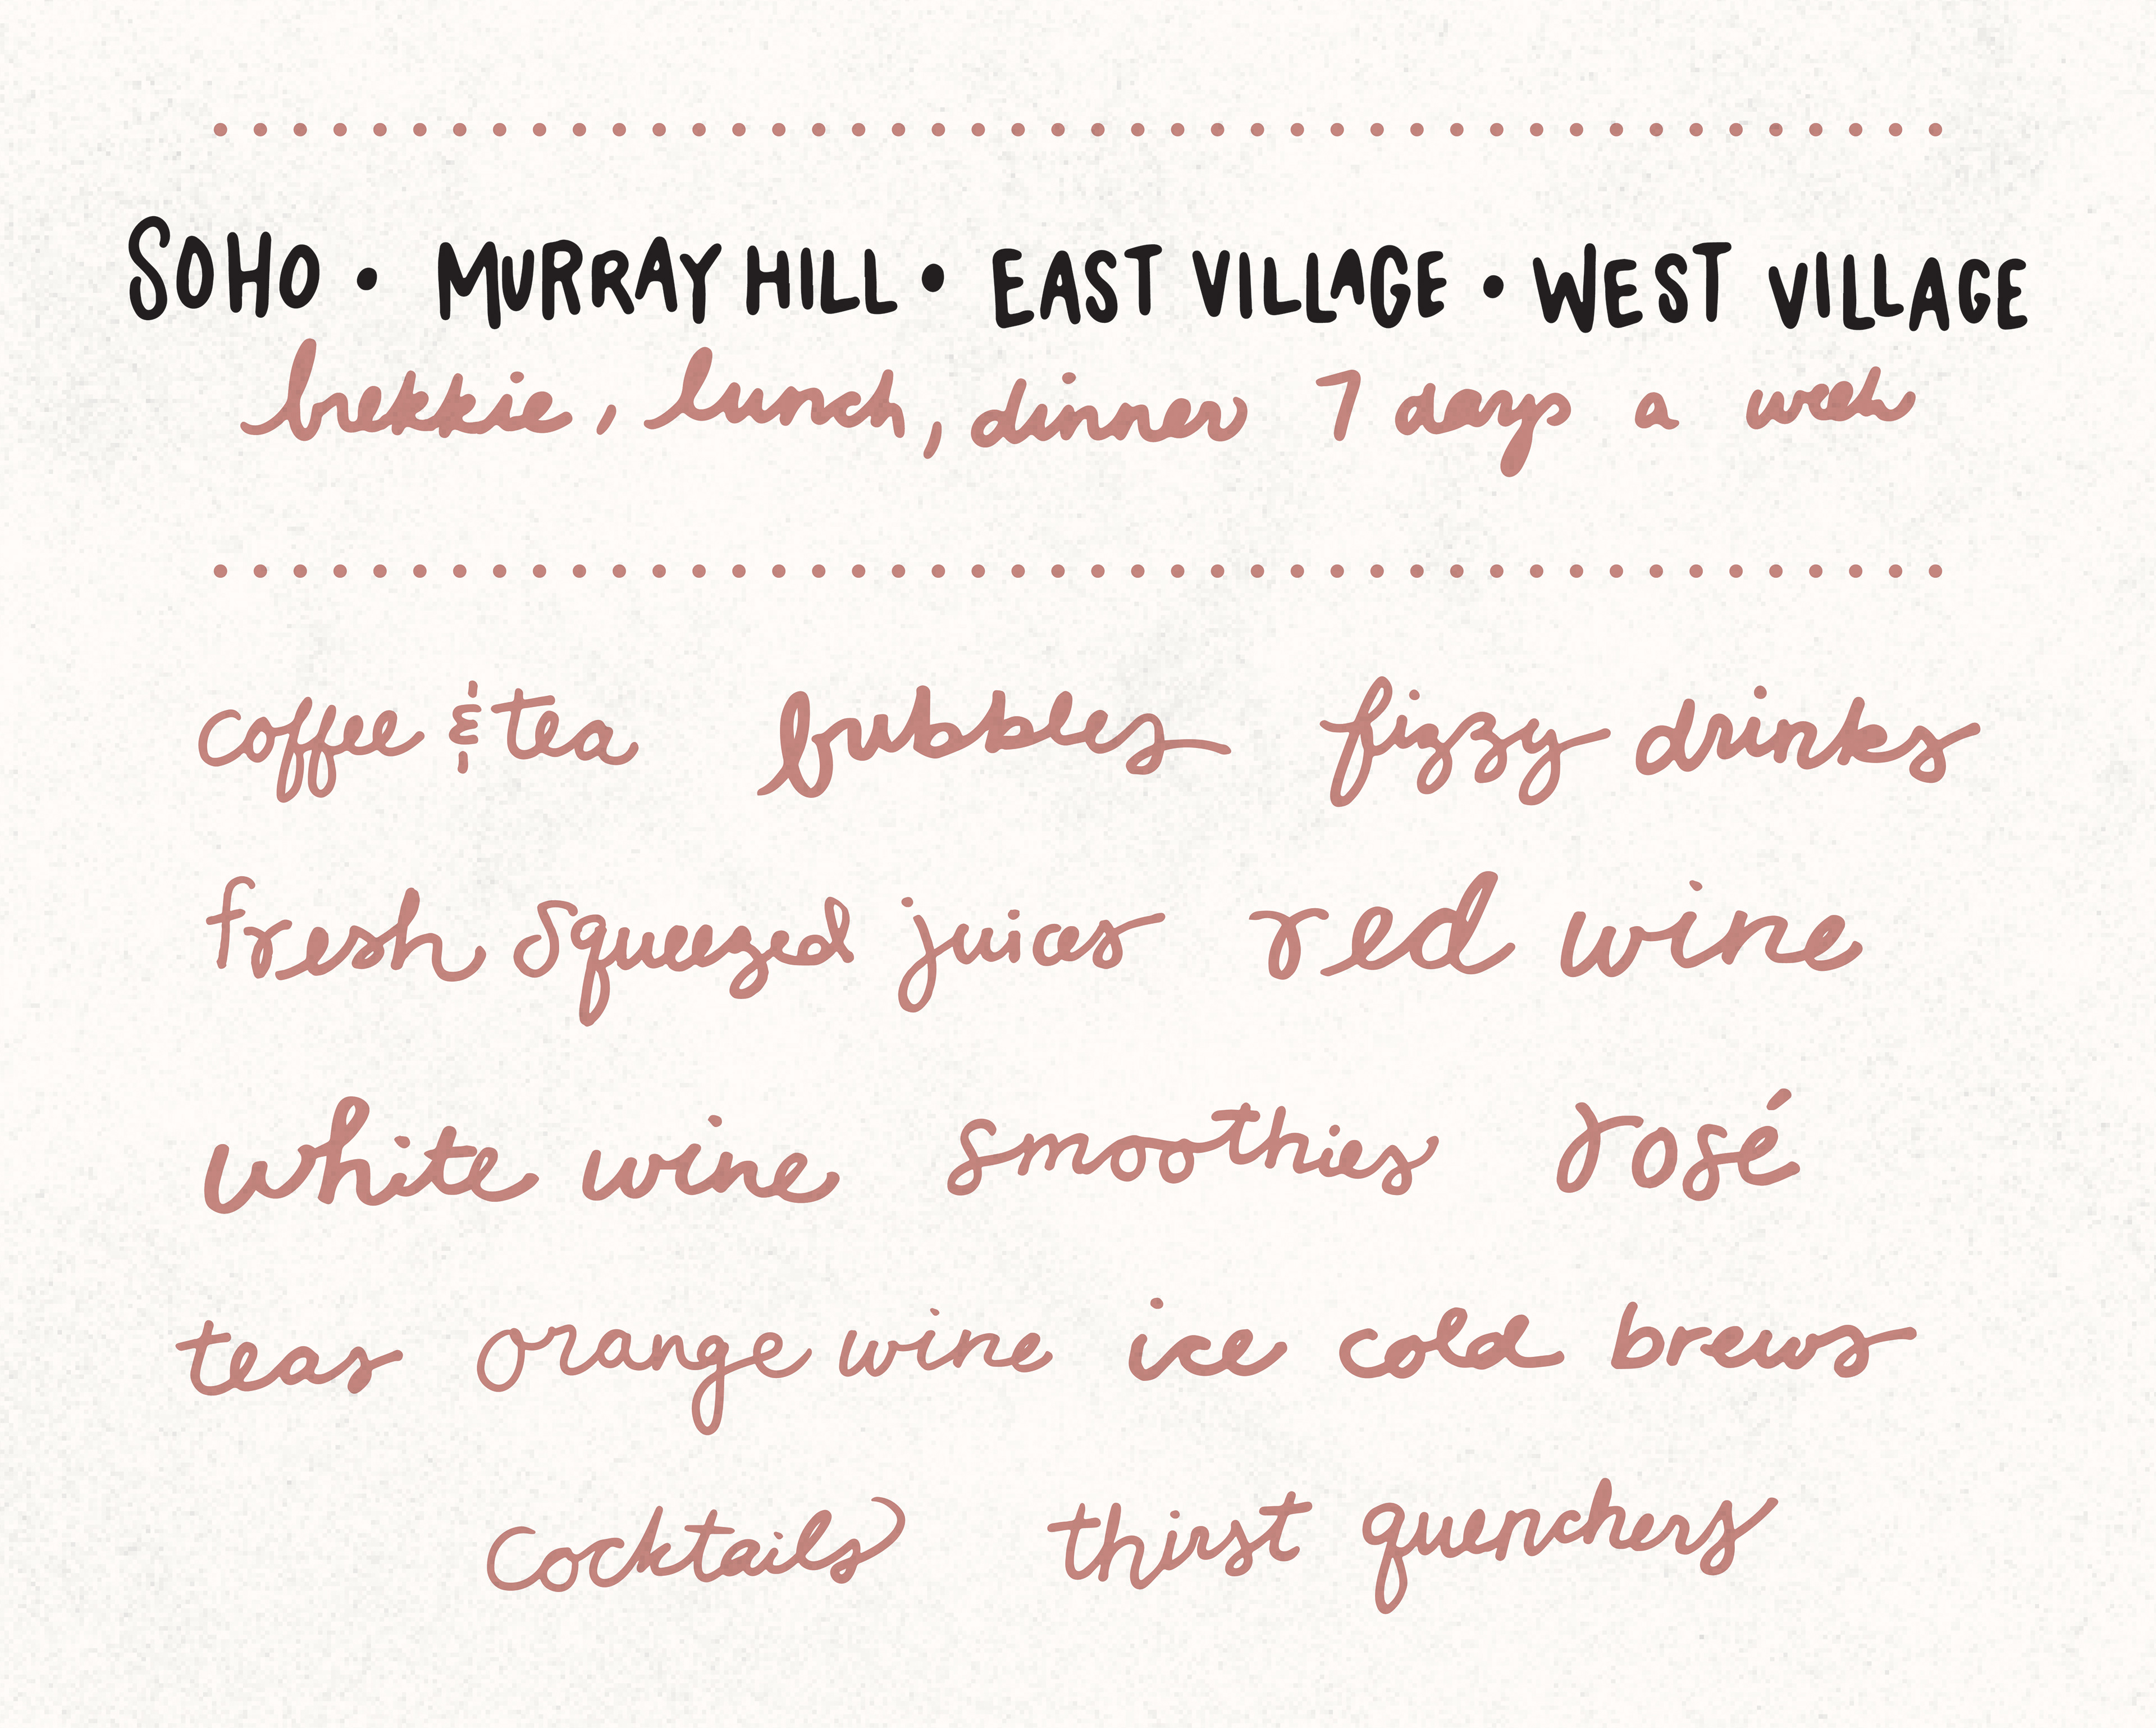 SOHO • MURRAY HILL • EAST VILLAGE • WEST VILLAGE
brekkie, lunch, dinner 7 days a week
coffee & tea bubbles fizzy drinks
fresh squeezed juices red wine
white wine smoothies rosé
teas orange wine ice cold brews
cocktails thirst quenchers